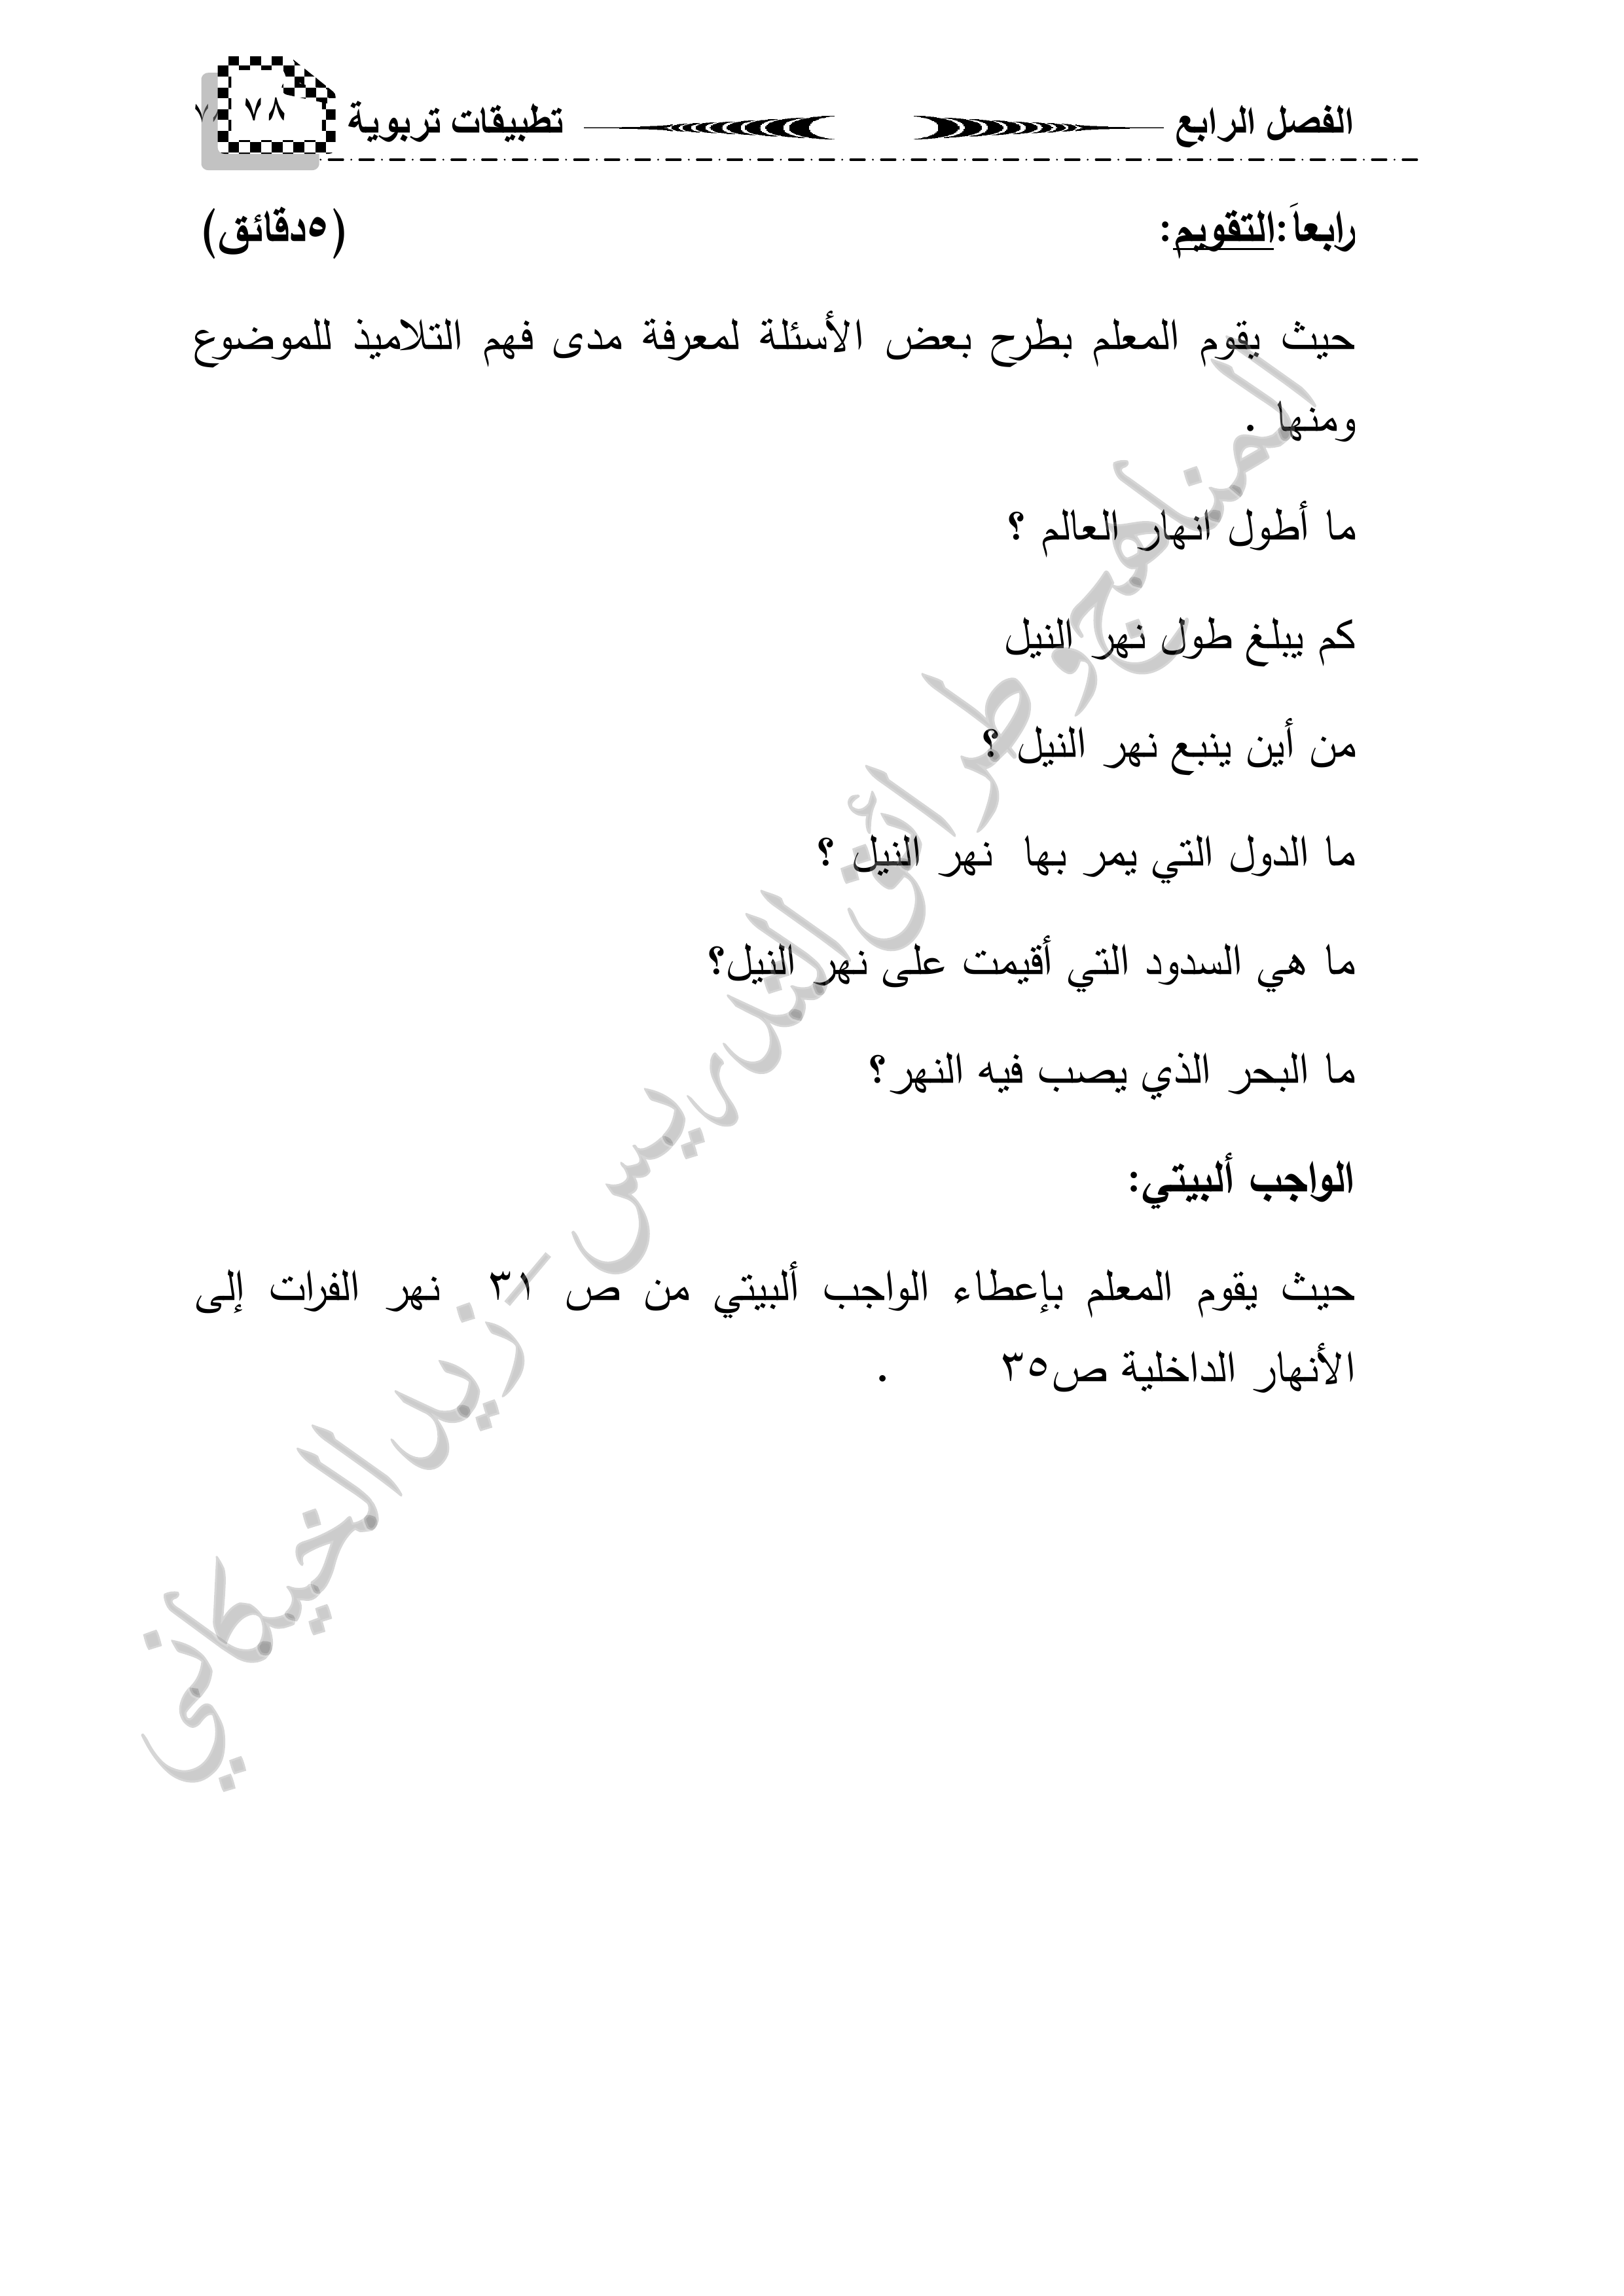 الفصل الرابع تطبيقات تربوية ٧٨
رابعاَ:التقويم: (٥دقائق)
حيث يقوم المعلم بطرح بعض الأسئلة لمعرفة مدى فهم التلاميذ للموضوع
ومنها .
ما أطول انهار العالم ؟
كم يبلغ طول نهر النيل
من أين ينبع نهر النيل ؟
ما الدول التي يمر بها نهر النيل ؟
ما هي السدود التي أقيمت على نهر النيل؟
ما البحر الذي يصب فيه النهر؟
الواجب ألبيتي:
حيث يقوم المعلم بإعطاء الواجب ألبيتي من ص ٣١ نهر الفرات إلى
الأنهار الداخلية ص٣٥ .
المناهج وطرائق التدريس - زيد الخيكاني